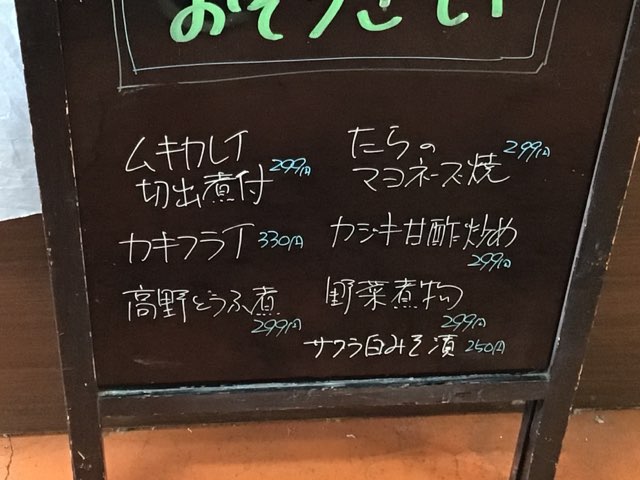 おそうざい
ムキカレイ
切出煮付 299円
カキフライ 330円
高野どうふ煮
299円
たらの 299円
マヨネーズ焼
カジキ甘酢炒め
299円
野菜煮物
299円
サワラ白みそ漬 250円